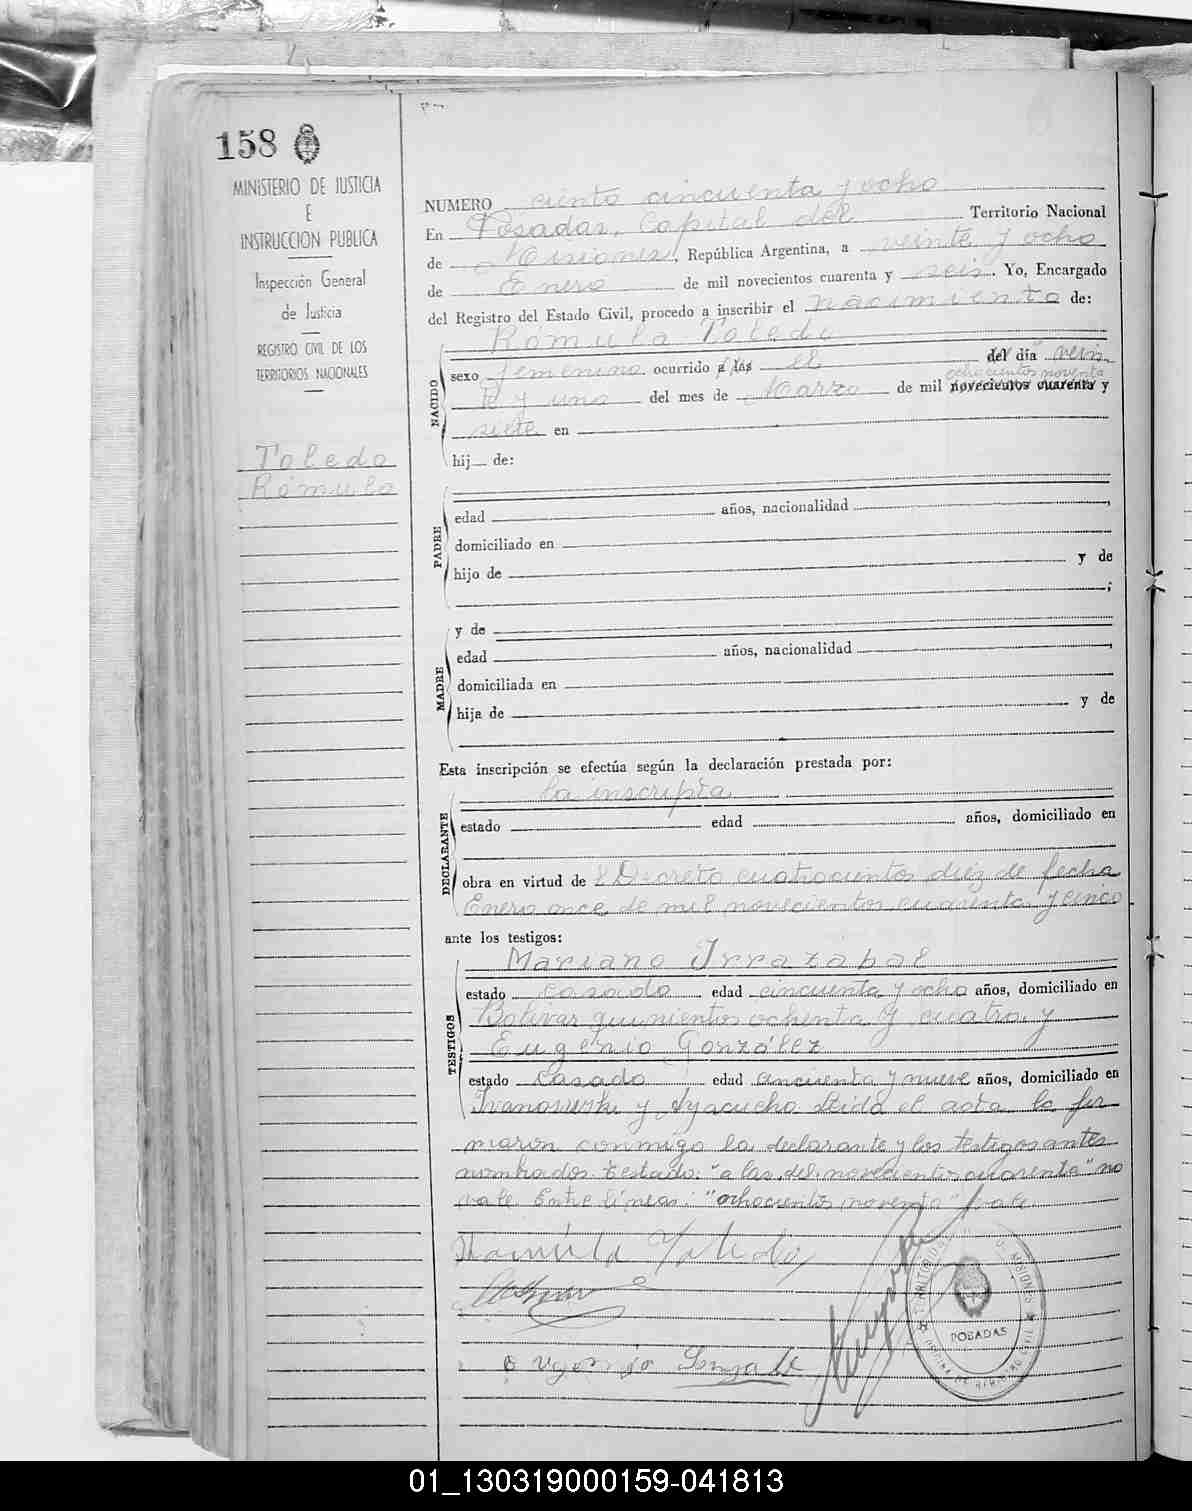 158
MINISTERIO DE JUSTICIA
E
INSTRUCCION PUBLICA
Inspección General
de Justicia
REGISTRO CIVIL DE LOS
TERRITORIOS NACIONALES
Toledo
Rómula
NUMERO ciento cincuenta y ocho
En Posadas, Capital del Territorio Nacional
de Misiones, República Argentina, a veinte y ocho
de Enero de mil novecientos cuarenta y seis. Yo, Encargado
del Registro del Estado Civil, procedo a inscribir el nacimiento de:
Rómula Toledo
NACIDO
sexo femenino ocurrido a las el del día vein
ochocientos noventa
te y uno del mes de Marzo de mil novecientos cuarenta y
siete en
hij de:
PADRE
edad años, nacionalidad
domiciliado en
hijo de y de
;
MADRE
y de
edad años, nacionalidad
domiciliada en
hija de y de
Esta inscripción se efectúa según la declaración prestada por:
DECLARANTE
la inscripta
estado edad años, domiciliado en
obra en virtud de l Decreto cuatrocientos diez de fecha
Enero once de mil novecientos cuarenta y cinco
ante los testigos:
TESTIGOS
Mariano Irrazabal
estado casado edad cincuenta y ocho años, domiciliado en
Bolivar quinientos ochenta y cuatro y
Eugenio González
estado casado edad cincuenta y nueve años, domiciliado en
y Ayacucho Leida el acta la fir
maron conmigo la declarante y los testigos antes
nombrados testado: "a las, del, novecientos cuarenta" no
vale Entre líneas: "ochocientos noventa" vale
Toledo
POSADAS
01_130319000159-041813